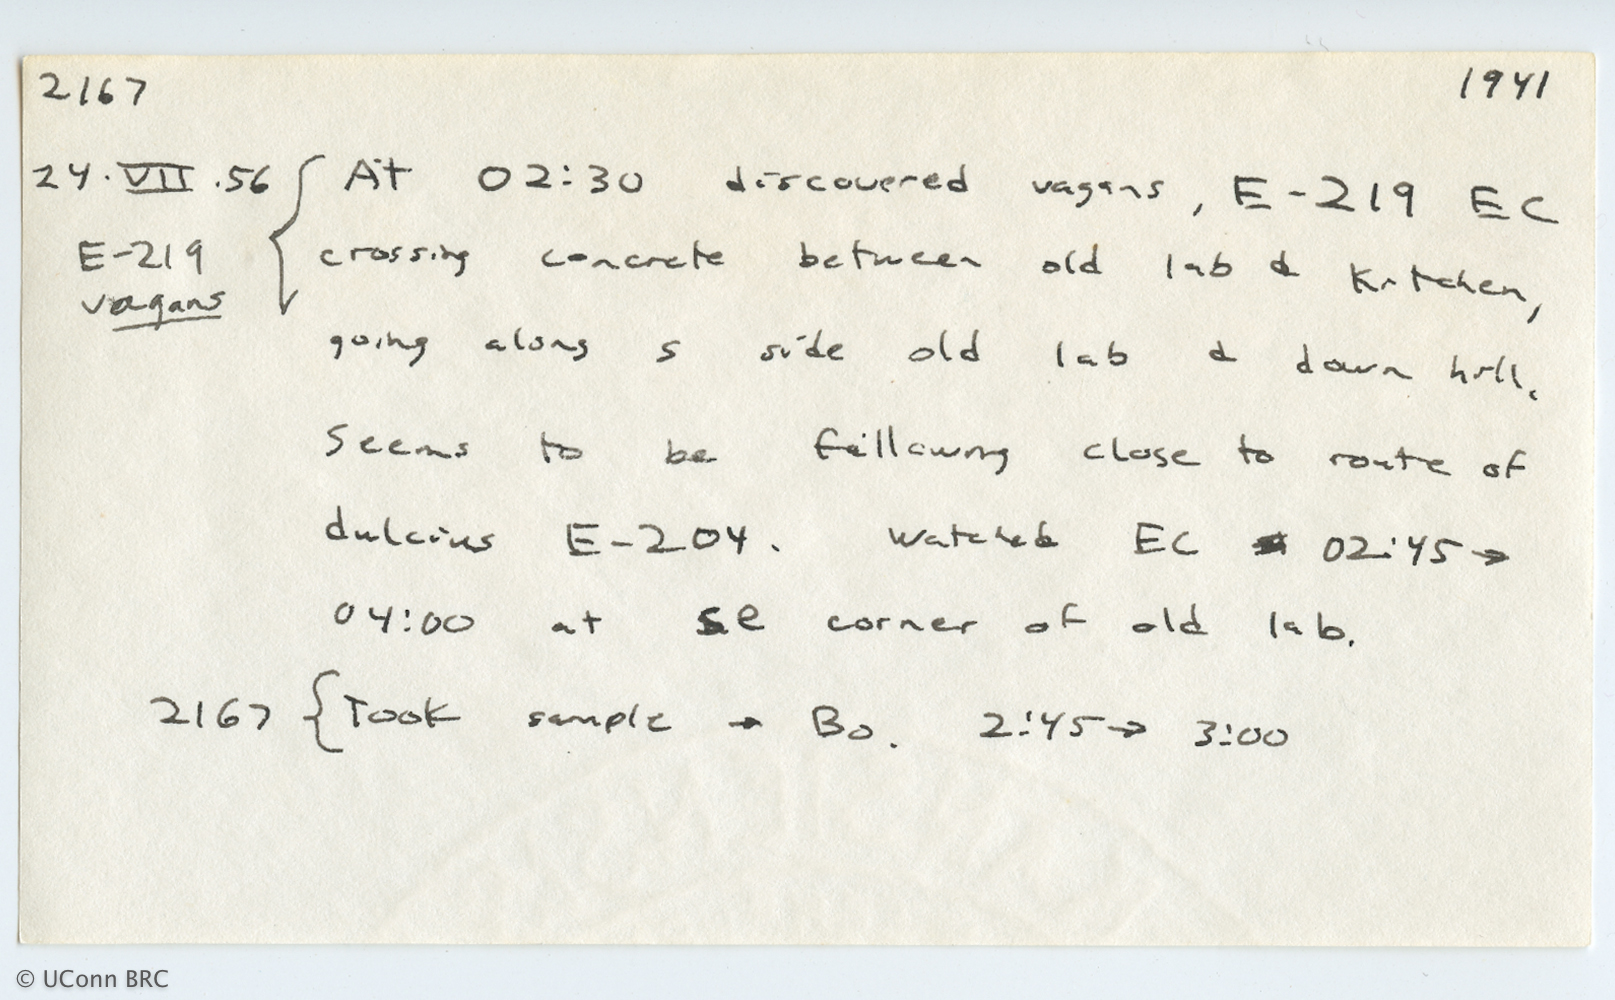 2167 1941
24.VII.56 At 02:30 discovered vagans, E-219 EC
E-219 crossing concrete between old lab & kitchen,
vagans
going along s side old lab & down hill.
Seems to be following close to route of
dulcius E-204. Watched EC 02:45→
04:00 at se corner of old lab.
2167 { Took sample → Bo. 2:45→ 3:00
© UConn BRC